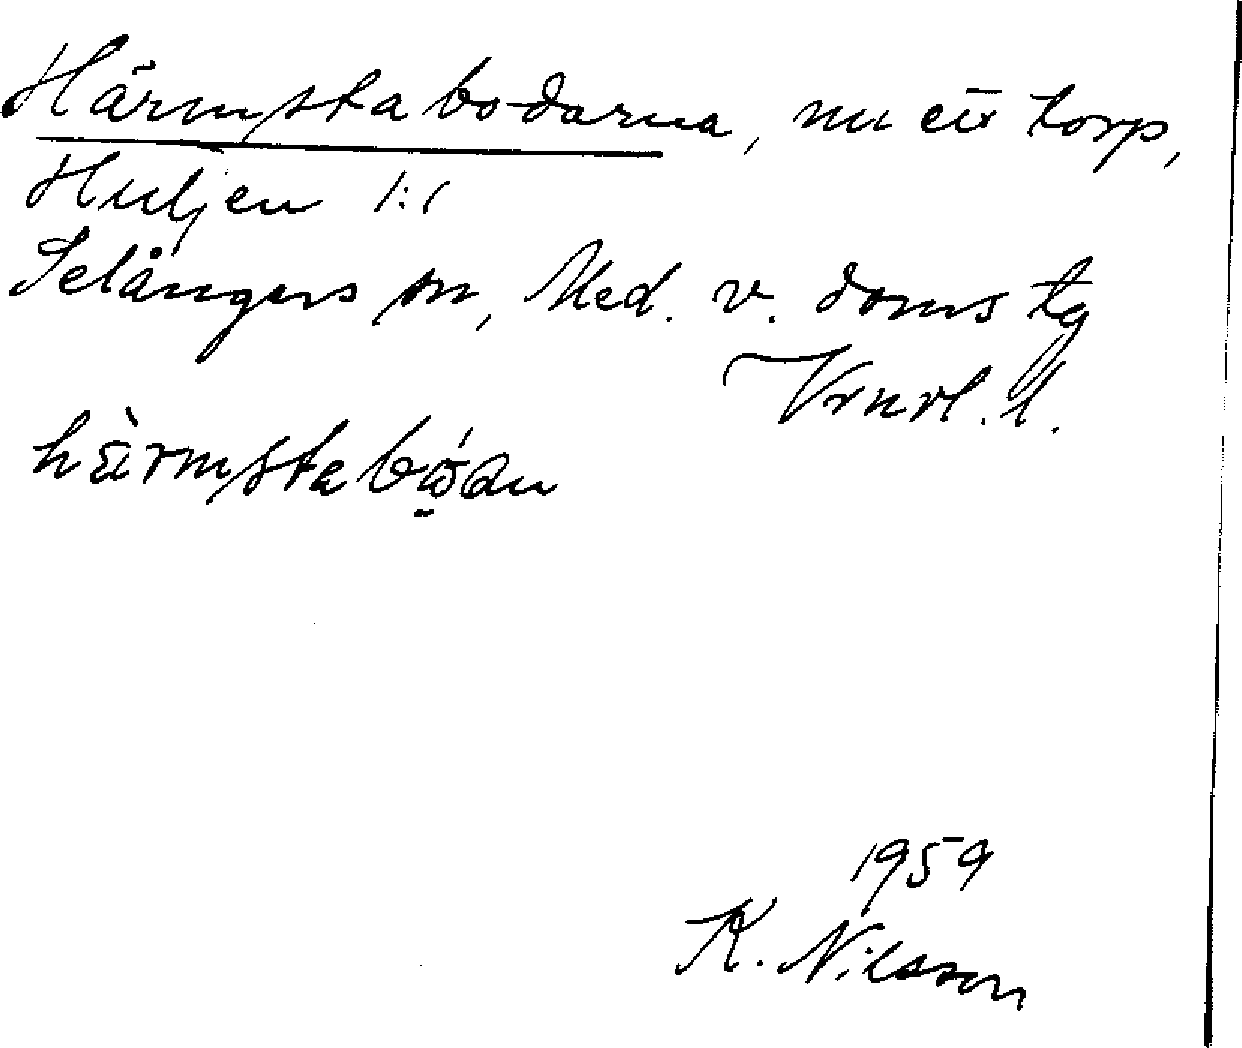 Härmstabodarna, nu ett torp,
Huljen 1:1
Selångers sn, Med. v. doms tg
Vrnrl. l.
härmstabó̤du
1959
K. Nilsson